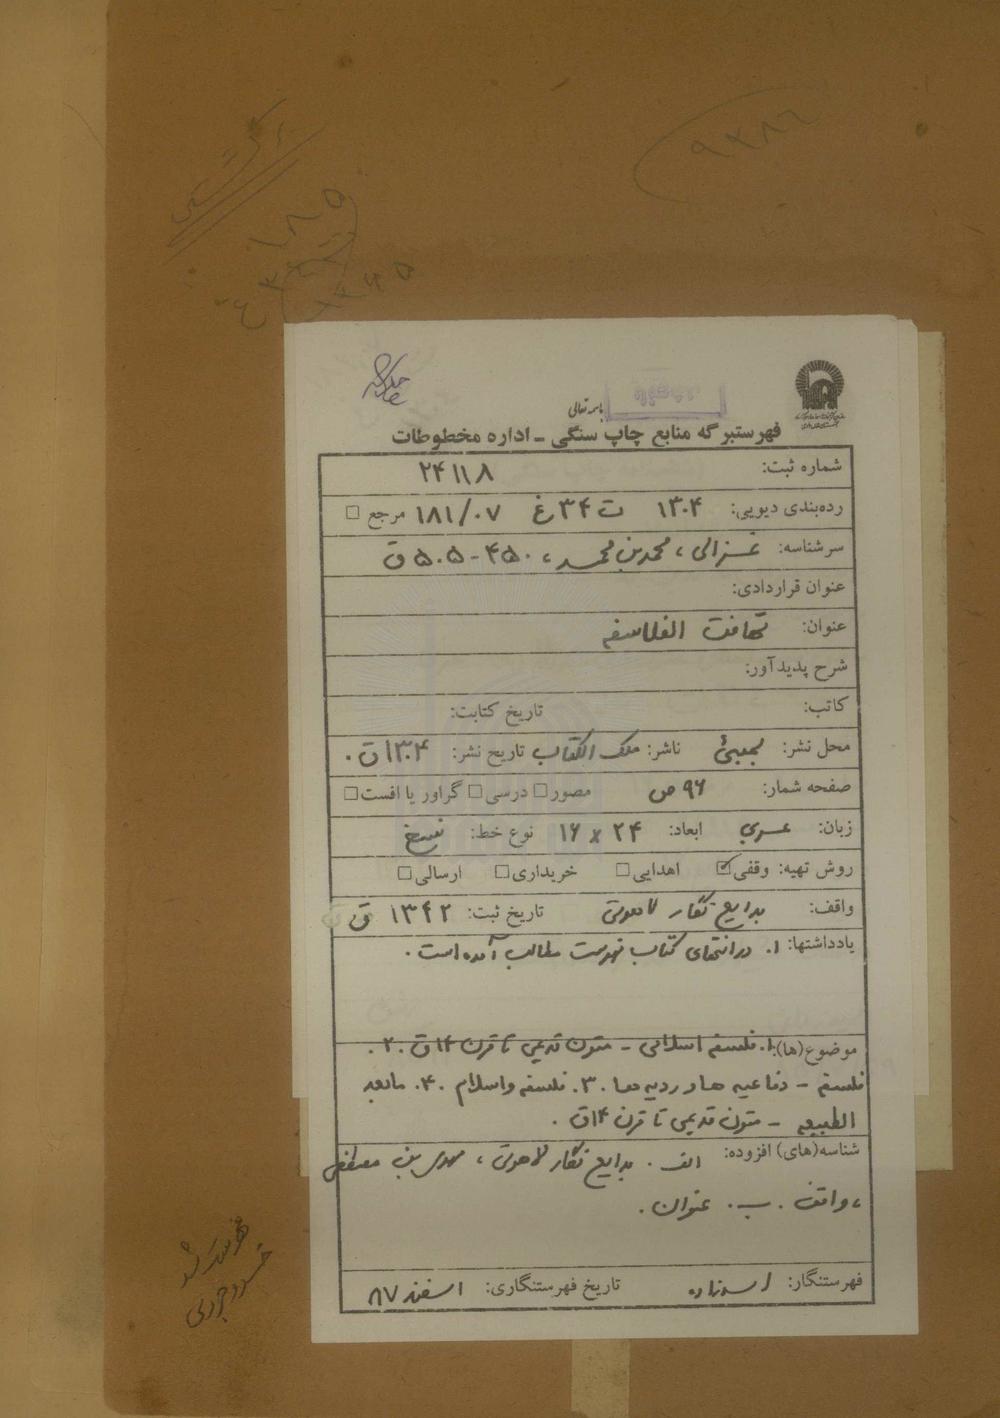 ۹۳۸۶
باسمه تعالی
فهرستبرگه منابع چاپ سنگی - اداره مخطوطات
شماره ثبت: ۲۴۱۱۸
رده‌بندی دیویی: ۱۳۰۴ ت ۳۴ غ ۱۸۱/۰۷ مرجع □
سرشناسه: غزالی، محمدبن محمد، ۴۵۰-۵۰۵ ق
عنوان قراردادی:
عنوان: تهافت الفلاسفه
شرح پدیدآور:
کاتب: تاریخ کتابت:
محل نشر: بمبئی ناشر: ملک الکتاب تاریخ نشر: ۱۳۰۴ ق.
صفحه شمار: ۹۶ ص مصور □ درسی □ گراور یا افست □
زبان: عربی ابعاد: ۲۴ × ۱۶ نوع خط: نسخ
روش تهیه: وقفی ☑ اهدایی □ خریداری □ ارسالی □
واقف: بدایع نگار لاهوتی تاریخ ثبت: ۱۳۴۲ ق
یادداشتها: ۱. در انتهای کتاب فهرست مطالب آمده است.
موضوع(ها): ۱. فلسفه اسلامی - متون قدیمی تا قرن ۱۴ ق. ۲.
فلسفه - دفاعیه ها و ردیه ها. ۳. فلسفه و اسلام. ۴. مابعد
الطبیعه - متون قدیمی تا قرن ۱۴ ق.
شناسه(های) افزوده: الف. بدایع نگار لاهوتی، مهدی بن مصطفی
، واقف. ب. عنوان.
فهرستنگار: اسدزاده تاریخ فهرستنگاری: اسفند ۸۷
فهرست شد